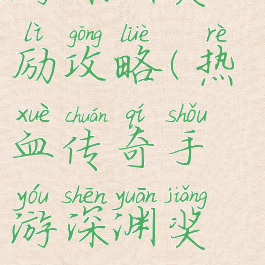 lì gōng lüè rè
励攻略(热
xuè chuán qí shǒu
血传奇手
yóu shēn yuān jiǎng
游深渊奖